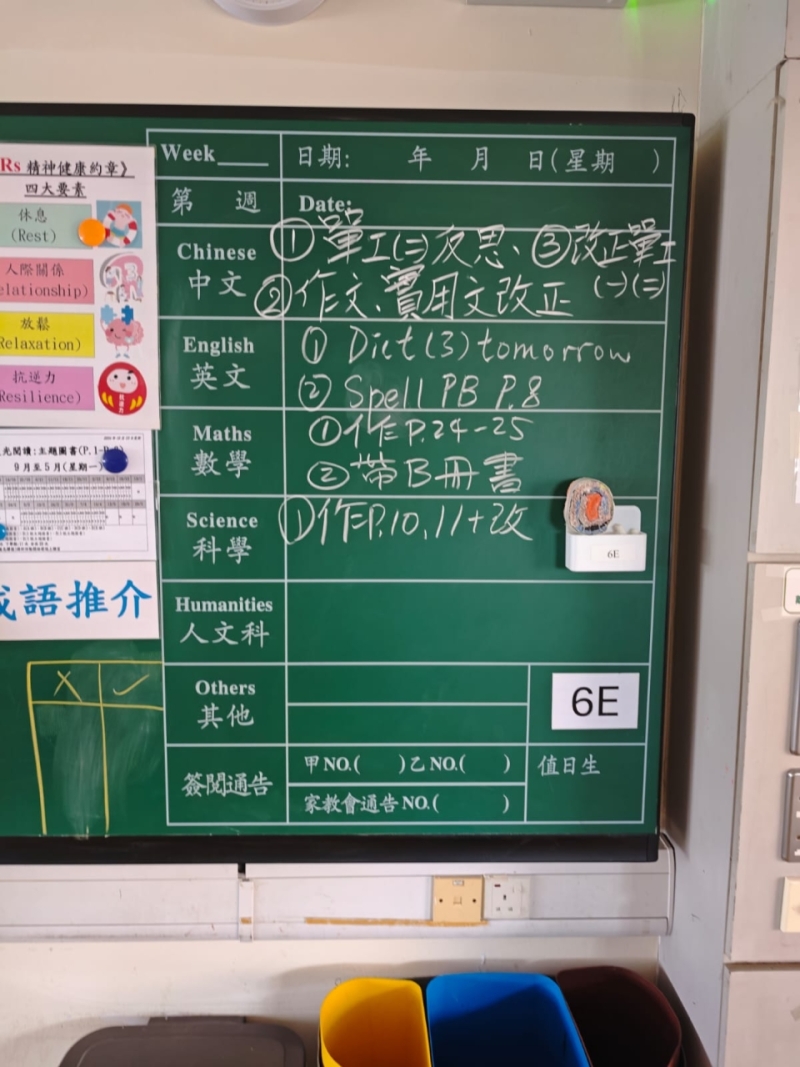 Rs 精神健康約章》
四大要素
休息
(Rest)
人際關係
elationship)
放鬆
Relaxation)
抗逆力
Resilience)
光閱讀:主題圖書(P.1-P.
9月至5月(星期一)
成語推介
X ✓
Week____ 日期: 年 月 日(星期 )
第 週 Date:
Chinese ① 單工(二)反思、③改正單工
中文 ②作文、實用文改正 (一)(二)
English ① Dict(3) tomorrow
英文 ② Spell PB P.8
Maths ①作P.24-25
數學 ②帶B冊書
Science ①作P.10,11+改
科學
6E
Humanities
人文科
Others
其他
6E
簽閱通告 甲NO.( )乙NO.( ) 值日生
家教會通告NO.( )